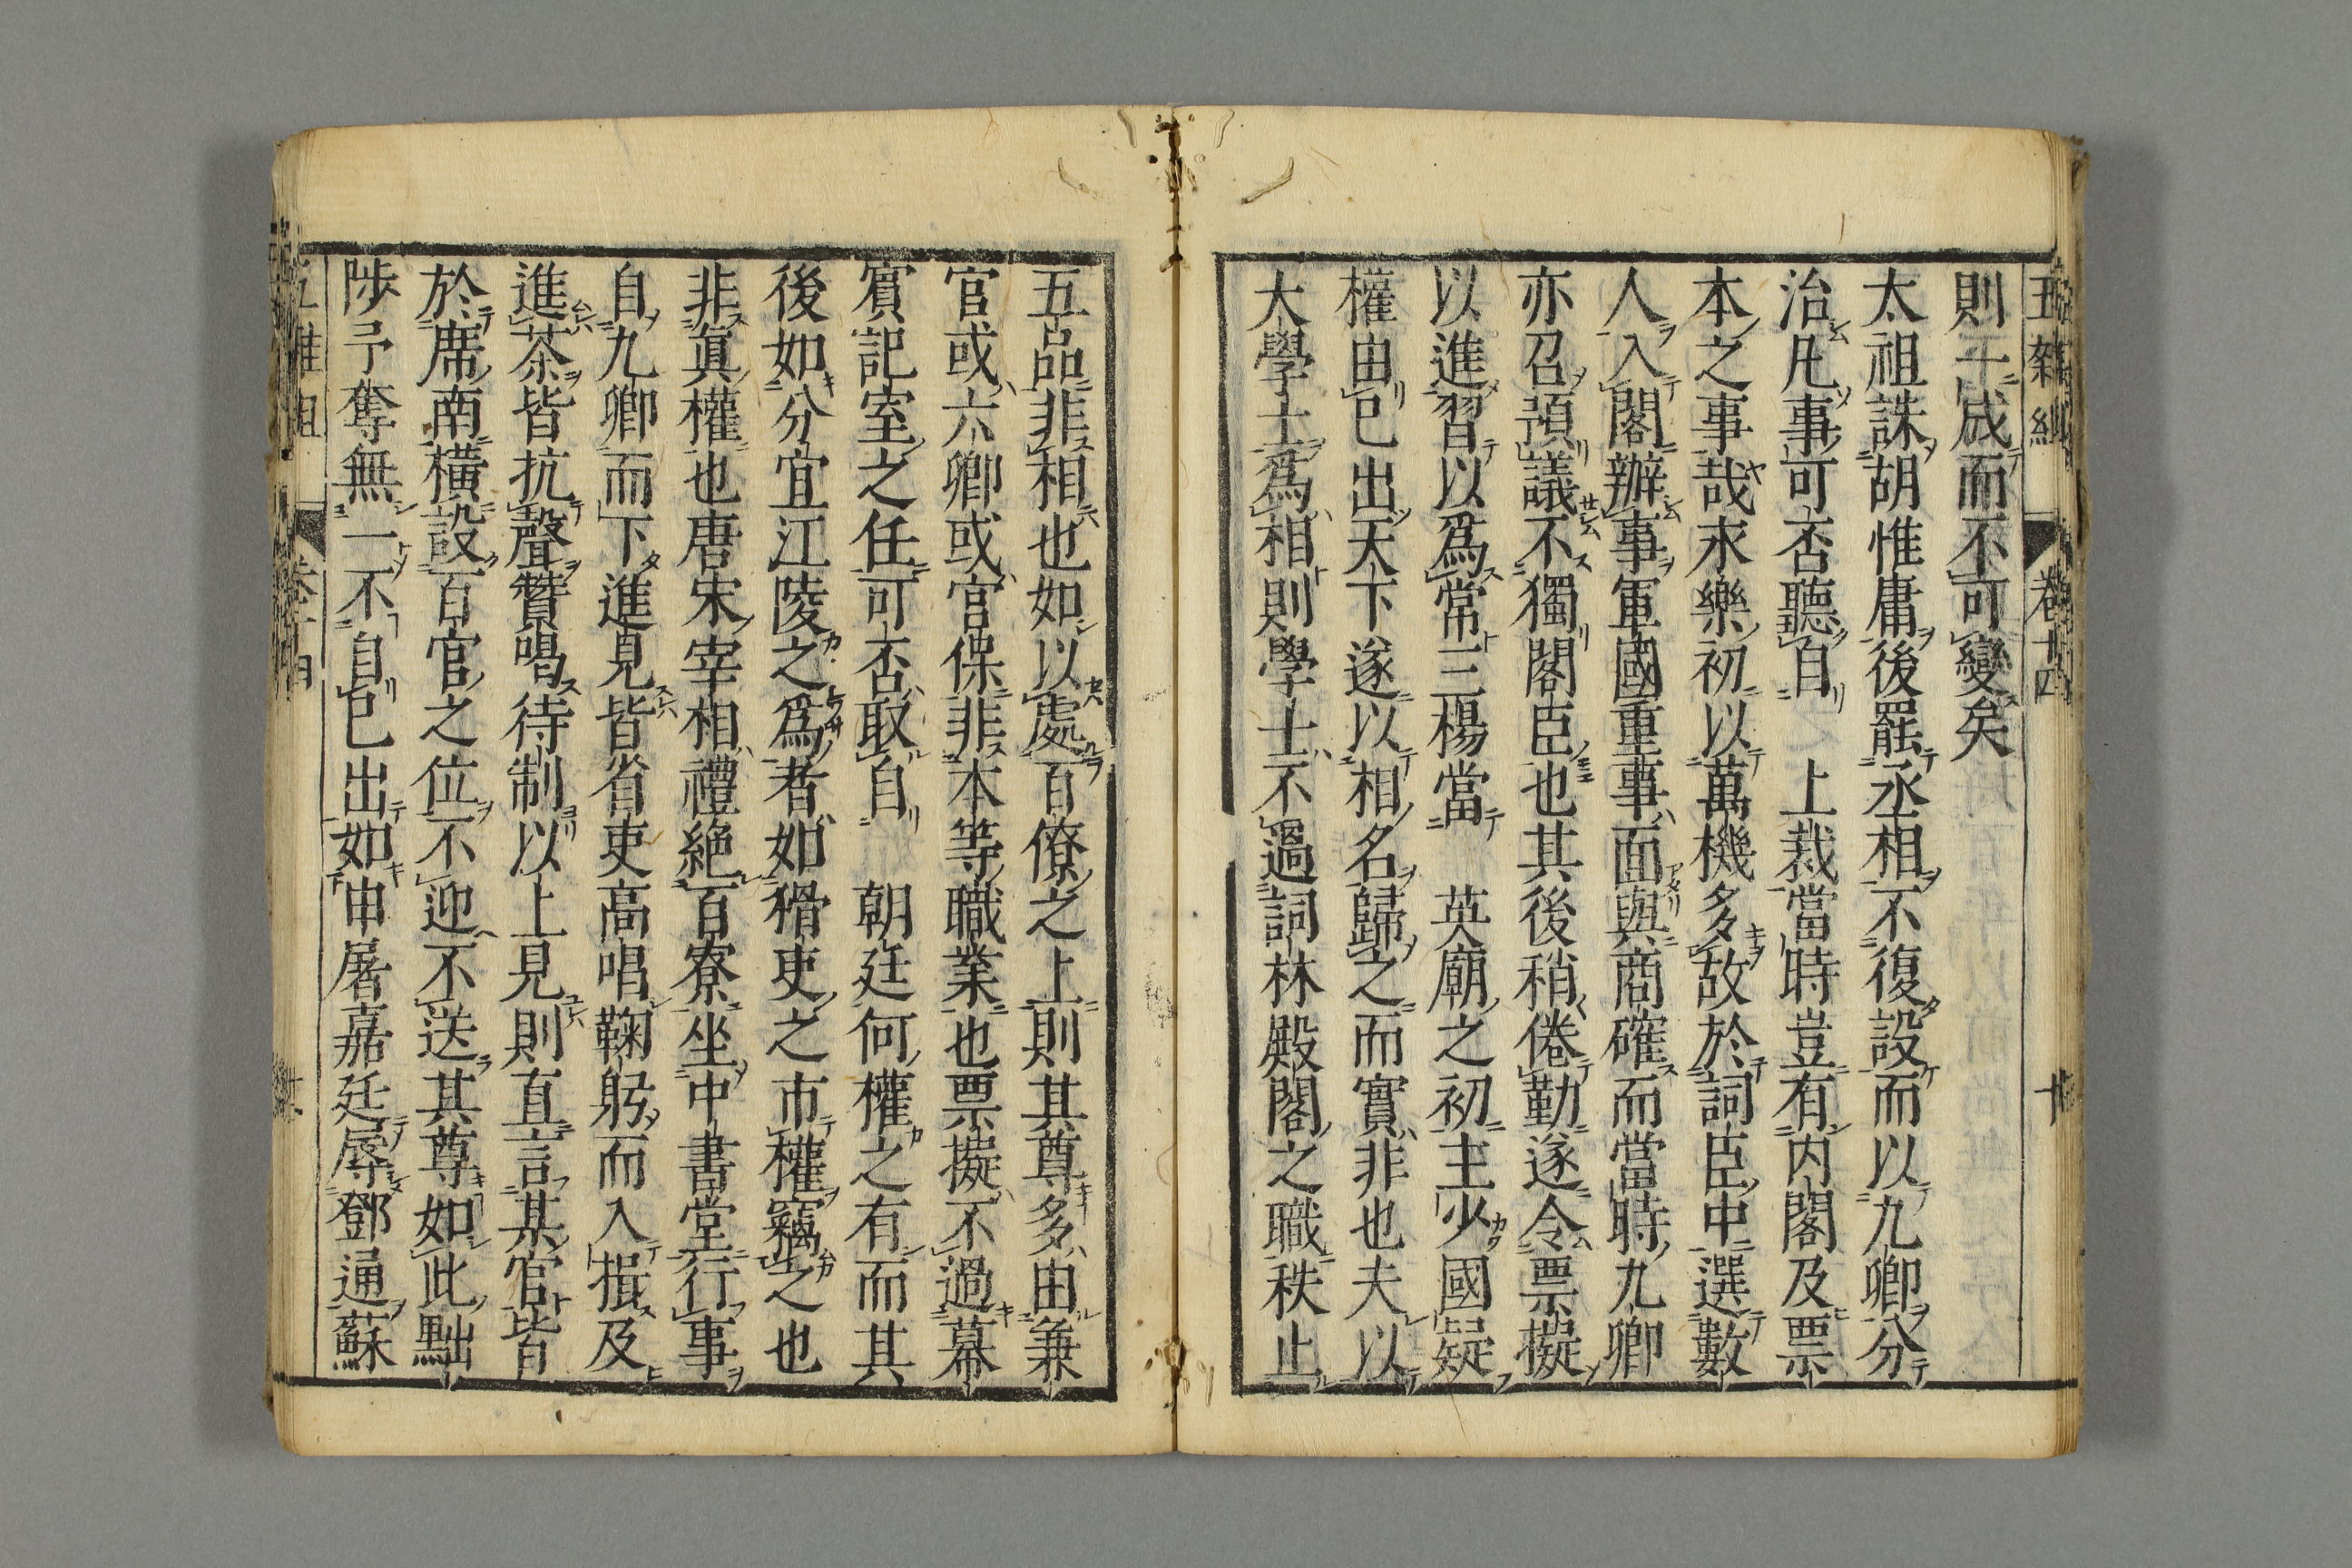 五雜俎 卷十四 十
則一成而不可變矣
太祖誅胡惟庸後罷丞相不復設而以九卿分
治凡事可否聽自 上裁當時豈有内閣及票
本之事哉永樂初以萬機多故於詞臣中選數
人入閣辦事軍國重事面與商確而當時九卿
亦召預議不獨閣臣也其後稍倦勤遂令票擬
以進習以爲常三楊當 英廟之初主少國疑
權由巳出天下遂以相名歸之而實非也夫以
大學士爲相則學士不過詞林殿閣之職秩止
五品非相也如以處百僚之上則其尊多由兼
官或六卿或宮保非本等職業也票擬不過幕
賓記室之任可否取自 朝廷何權之有而其
後如分宜江陵之爲者如猾吏之市權竊之也
非眞權也唐宋宰相禮絶百寮坐中書堂行事
自九卿而下進見皆省吏高唱鞠躬而入揖及
進茶皆抗聲贊喝待制以上見則直言某官皆
於席南横設百官之位不迎不送其尊如此黜
陟予奪無一不自巳出如申屠嘉廷辱鄧通蘇